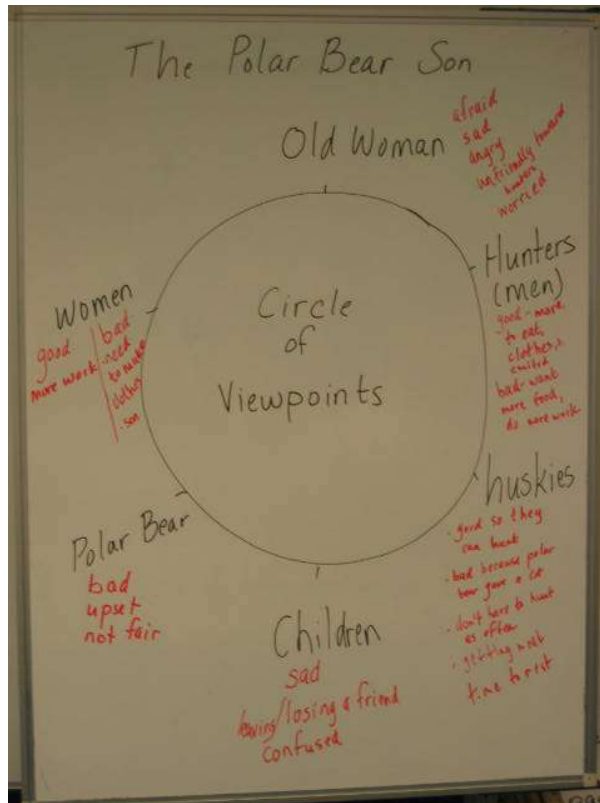 The Polar Bear Son
Old Woman
afraid
sad
angry
unfriendly toward
hunters
worried
Hunters
(men)
good - more
to eat,
clothes,
excited
bad - want
more food,
do more work
huskies
· good so they
can hunt
· bad because polar
bear gave a lot
· don't have to hunt
as often
· getting
time to rest
Children
sad
leaving/losing a friend
confused
Polar Bear
bad
upset
not fair
Women
good
more work
bad
need
to make
clothes
· son
Circle
of
Viewpoints